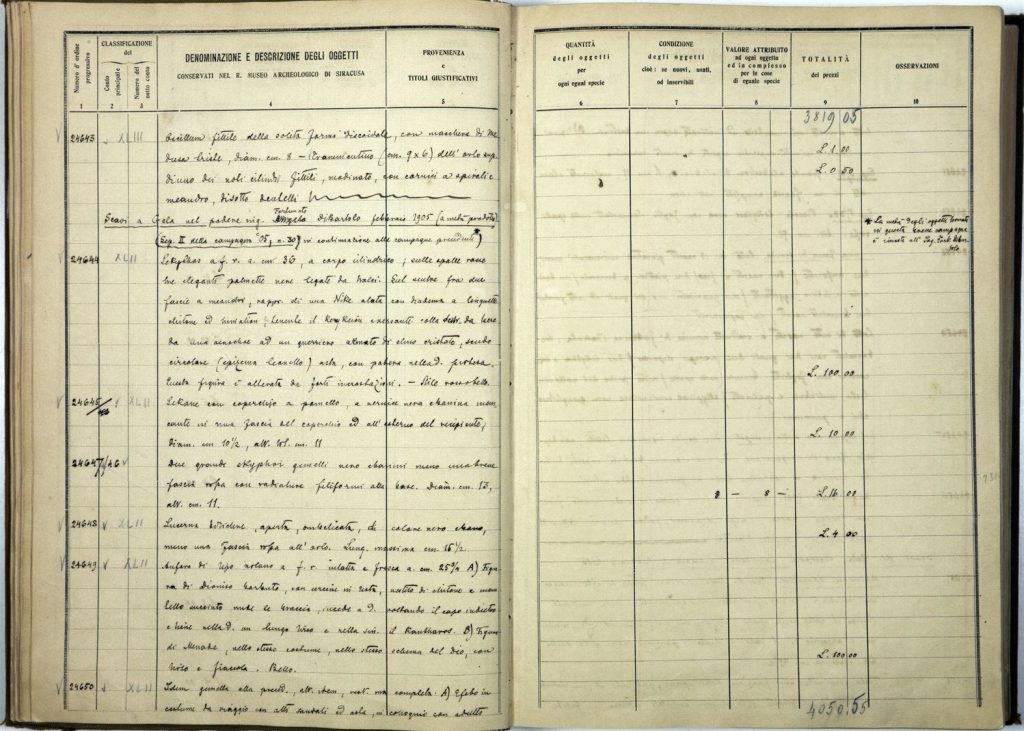 Numero d'ordine progressivo
CLASSIFICAZIONE
del
Conto principale
Numero del sotto conto
DENOMINAZIONE E DESCRIZIONE DEGLI OGGETTI
CONSERVATI NEL R. MUSEO ARCHEOLOGICO DI SIRACUSA
PROVENIENZA
e
TITOLI GIUSTIFICATIVI
1 2 3 4 5
24643 XLIII Oscillum fittile della solita forma discoidale, con maschera di Me
dusa triste, diam. cm. 8 — (cm. 9 x 6) dell'orlo sup.
di uno dei noti cilindri fittili, modinato, con cornici a spirali e
meandro, disotto dentelli
Fortunato
Scavi a Gela nel podere sig. DiBartolo febbraio 1905 (a metà prodotto)
(Sep. II della campagna '05, n. 30) in continazione alle campagne precedenti *
24644 XLII Lekythos a f. r. a. cm. 36, a corpo cilindrico; sulle spalle rosse
tre eleganti palmette nere legate da tralci. Sul ventre fra due
fascie a meandri, rappr. di una Nike alata con diadema a linguette
chitone ed himation; tenente il Kerykeion versante colla destr. da bere
da una oinochoe ad un guerriero armato di elmo cristato, scudo
circolare (epizema leoncello) asta, con patera nella d. protesa.
Questa figura è alterata da forti incrostazioni. — Stile rosso bello.
24645 XLII Lekane con coperchio a pomello, a vernice nera ebanina man
cante in una fascia del coperchio ed all'esterno del recipiente;
Diam. cm 10½, alt. tot. cm. 11
24647/46 Due grandi skyphoi gemelli nero ebanini meno una breve
fascia rossa con radiature filiformi alla base. Diam. cm. 13,
alt. cm. 11.
24648 XLII Lucerna bidiene, aperta, ombelicata, di colore nero ebano,
meno una fascia rossa all'orlo. Lung. massima cm 16½.
24649 XLII Anfora di tipo nolano a f. r. intatta e fresca a. cm. 25¾ A) Figu
ra di Dioniso barbato, con cercine in testa, vestito di chitone e man
tello incede a d. voltando il capo indietro
e tiene nella d. un lungo tirso e nella sin. il Kantharos. B) Figura
di Menade, nello stesso costume, nello stesso schema del dio, con
tirso e fiaccola. Bello.
24650 XLII Idem gemella alla preced., alt. idem, ma completa. A) Efebo in
costume da viaggio con alti sandali ed asta, in colloquio con adulto
QUANTITÀ
degli oggetti
per
ogni egual specie
CONDIZIONE
degli oggetti
cioè: se nuovi, usati,
od inservibili
VALORE ATTRIBUITO
ad ogni oggetto
ed in complesso
per le cose
di eguale specie
TOTALITÀ
dei prezzi
OSSERVAZIONI
6 7 8 9 10
3819 05
L. 1 00
L. 0 50
* La metà degli oggetti trovati
in questa breve campagna
è rimasta all'
L. 100 00
L. 10 00
8 — 8 — L. 16 00
L. 4 00
L. 100 00
4050.55